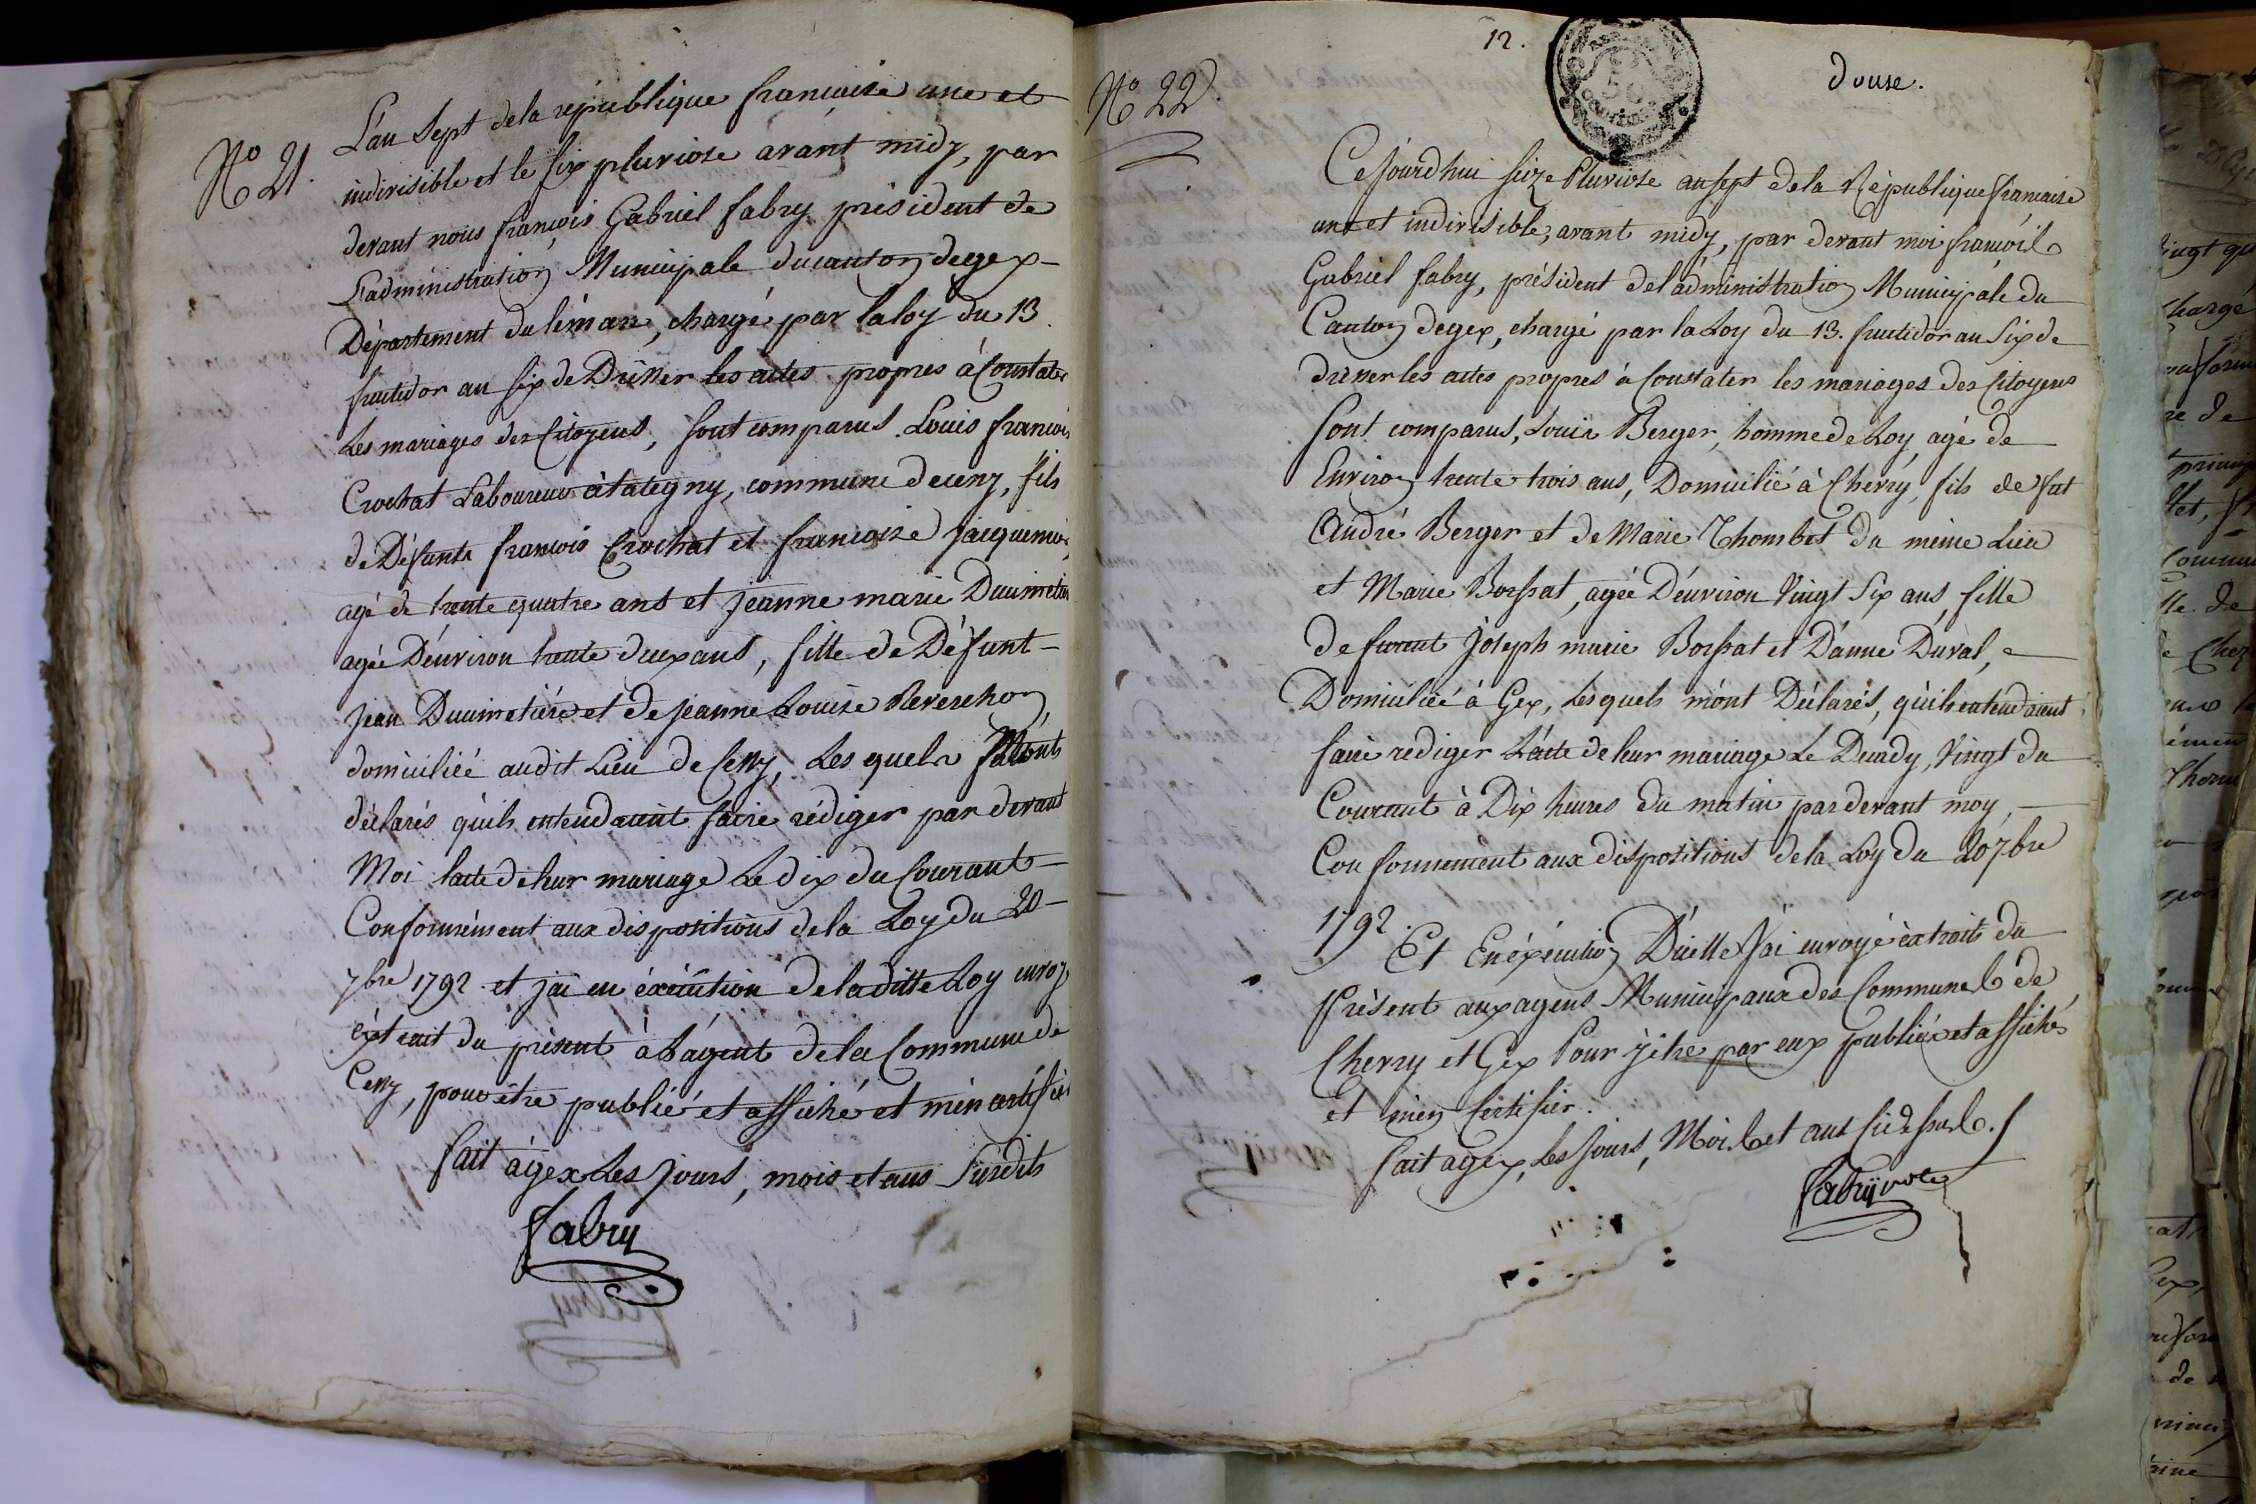 No 21.
L'an sept de la république francaise une et
indivisible et le six pluviose avant midy, par
devant nous françois Gabriel fabry président de
L'administration Municipale du canton de gex
Département du léman, chargé par la loy du 13.
fructidor an six de Drésser les actes propres à Constater
Les mariages des Citoyens, sont comparus Louis francois
Crochat Laboureur à commune de cessy, fils
de Défunts francois Crochat et francoise Jacquemier
agé de trente quatre ans et jeanne marie Ducimetière
agée D'environ trente deux ans, fille de Défunt
jean Ducimetière et de jeanne Louise Reverchon
domiciliée audit Lieu de Cessy, Les quels
déclarés qu'ils entendaient faire rédiger par devant
Moi l'acte de leur mariage Le dix du Courant
Conformément aux dispositions de la Loy du 20
7bre 1792. et j'ai en éxécution de la ditte Loy envoyé
éxtrait du présent à l'agent de la Commune de
Cessy, pour être publié et affiché et m'en certifier
fait à gex Les jours, mois et ans Susdits
fabry
12.
douse.
No 22.
Ce jourd'hui seize Pluviose an sept de la République francaise
une et indivisible, avant midy, par devant moi françois
Gabriel fabry, président de l'administration Municipale du
Canton de gex, chargé par la Loy du 13. fructidor an Six de
drésser les actes propres à Constater les mariages des Citoyens
Sont comparus, Louis Berger, homme de Loy, agé de
Environ trente trois ans, Domicilié à Chevry, fils de feat
André Berger et de Marie Thombet du même Lieu
et Marie Borssat, agée D'environ Vingt Six ans, fille
de furent Joseph marie Borssat et D'anne Duval,
Domiciliée à Gex, Lesquels m'ont Déclarés, qu'ils entendaient
faire rediger L'acte de leur mariage Le Decady, Vingt du
Courant à Dix heures du matin par devant moy,
Conformément aux dispositions de la Loy du 20 7bre
1792.
Et En éxécution D'icelle j'ai envoyé éxtraits du
Présent aux agens Municipaux des Communes de
Chevry et Gex Pour y être par eux publiés et affichés
et m'en Certifier.
fait a gex, Les Jours, Mois et ans Ci dessus.
fabry